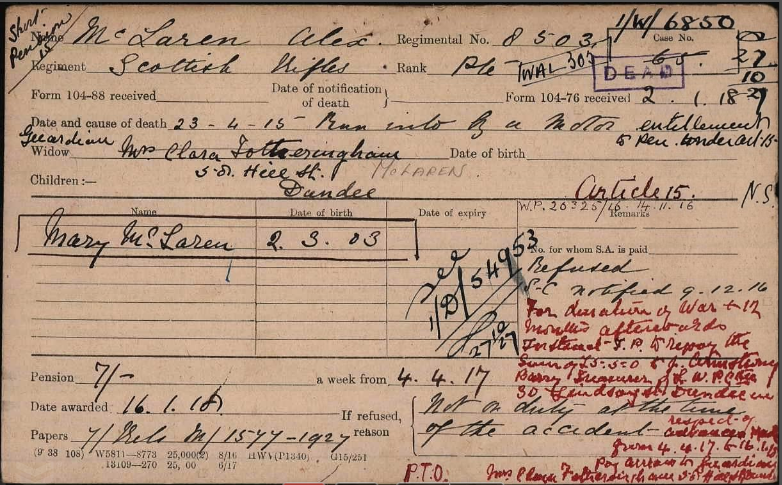 Short Pension 15
1/W/6850
Name McLaren Alex. Regimental No. 8503 Case No.
Regiment Scottish Rifles. Rank Pte TWAL 303 65. DEAD
Form 104-88 received Date of notification of death Form 104-76 received 2.1.18
Date and cause of death 23-4-15 Run into by a Motor entitlement
to Pen. under art: 15-
Guardian
Widow Mrs Clara Fotheringham Date of birth
Hill St. McLAREN.
Dundee
Children:— Article 15. N.S.
W.P. 20325/16 14.11.16
Name Date of birth Date of expiry Remarks
Mary McLaren 2.3.03
No. for whom S.A. is paid
See 1/D/54953
27/10/27
Refused
S-C notified 9.12.16
For duration of War + 12
Months afterwards
Instruct to repay the
Sum of £5-5-0 to
Barry Treasurer of L.W.P.
30 Dundee
Pension 7/- a week from 4.4.17
Date awarded 16.1.18
If refused, reason
Not on duty at the time
of the accident
respect of
from 4.4.17 to 16.1.18
Pay arrears to Guardian
Papers 7/ M/1577-1927
(9 38 108) W5811—8773 25,000(2) 8/16 HWV(P1340) G15/251
13109—270 25,00 6/17
P.T.O.
Mrs Clara Fotheringham